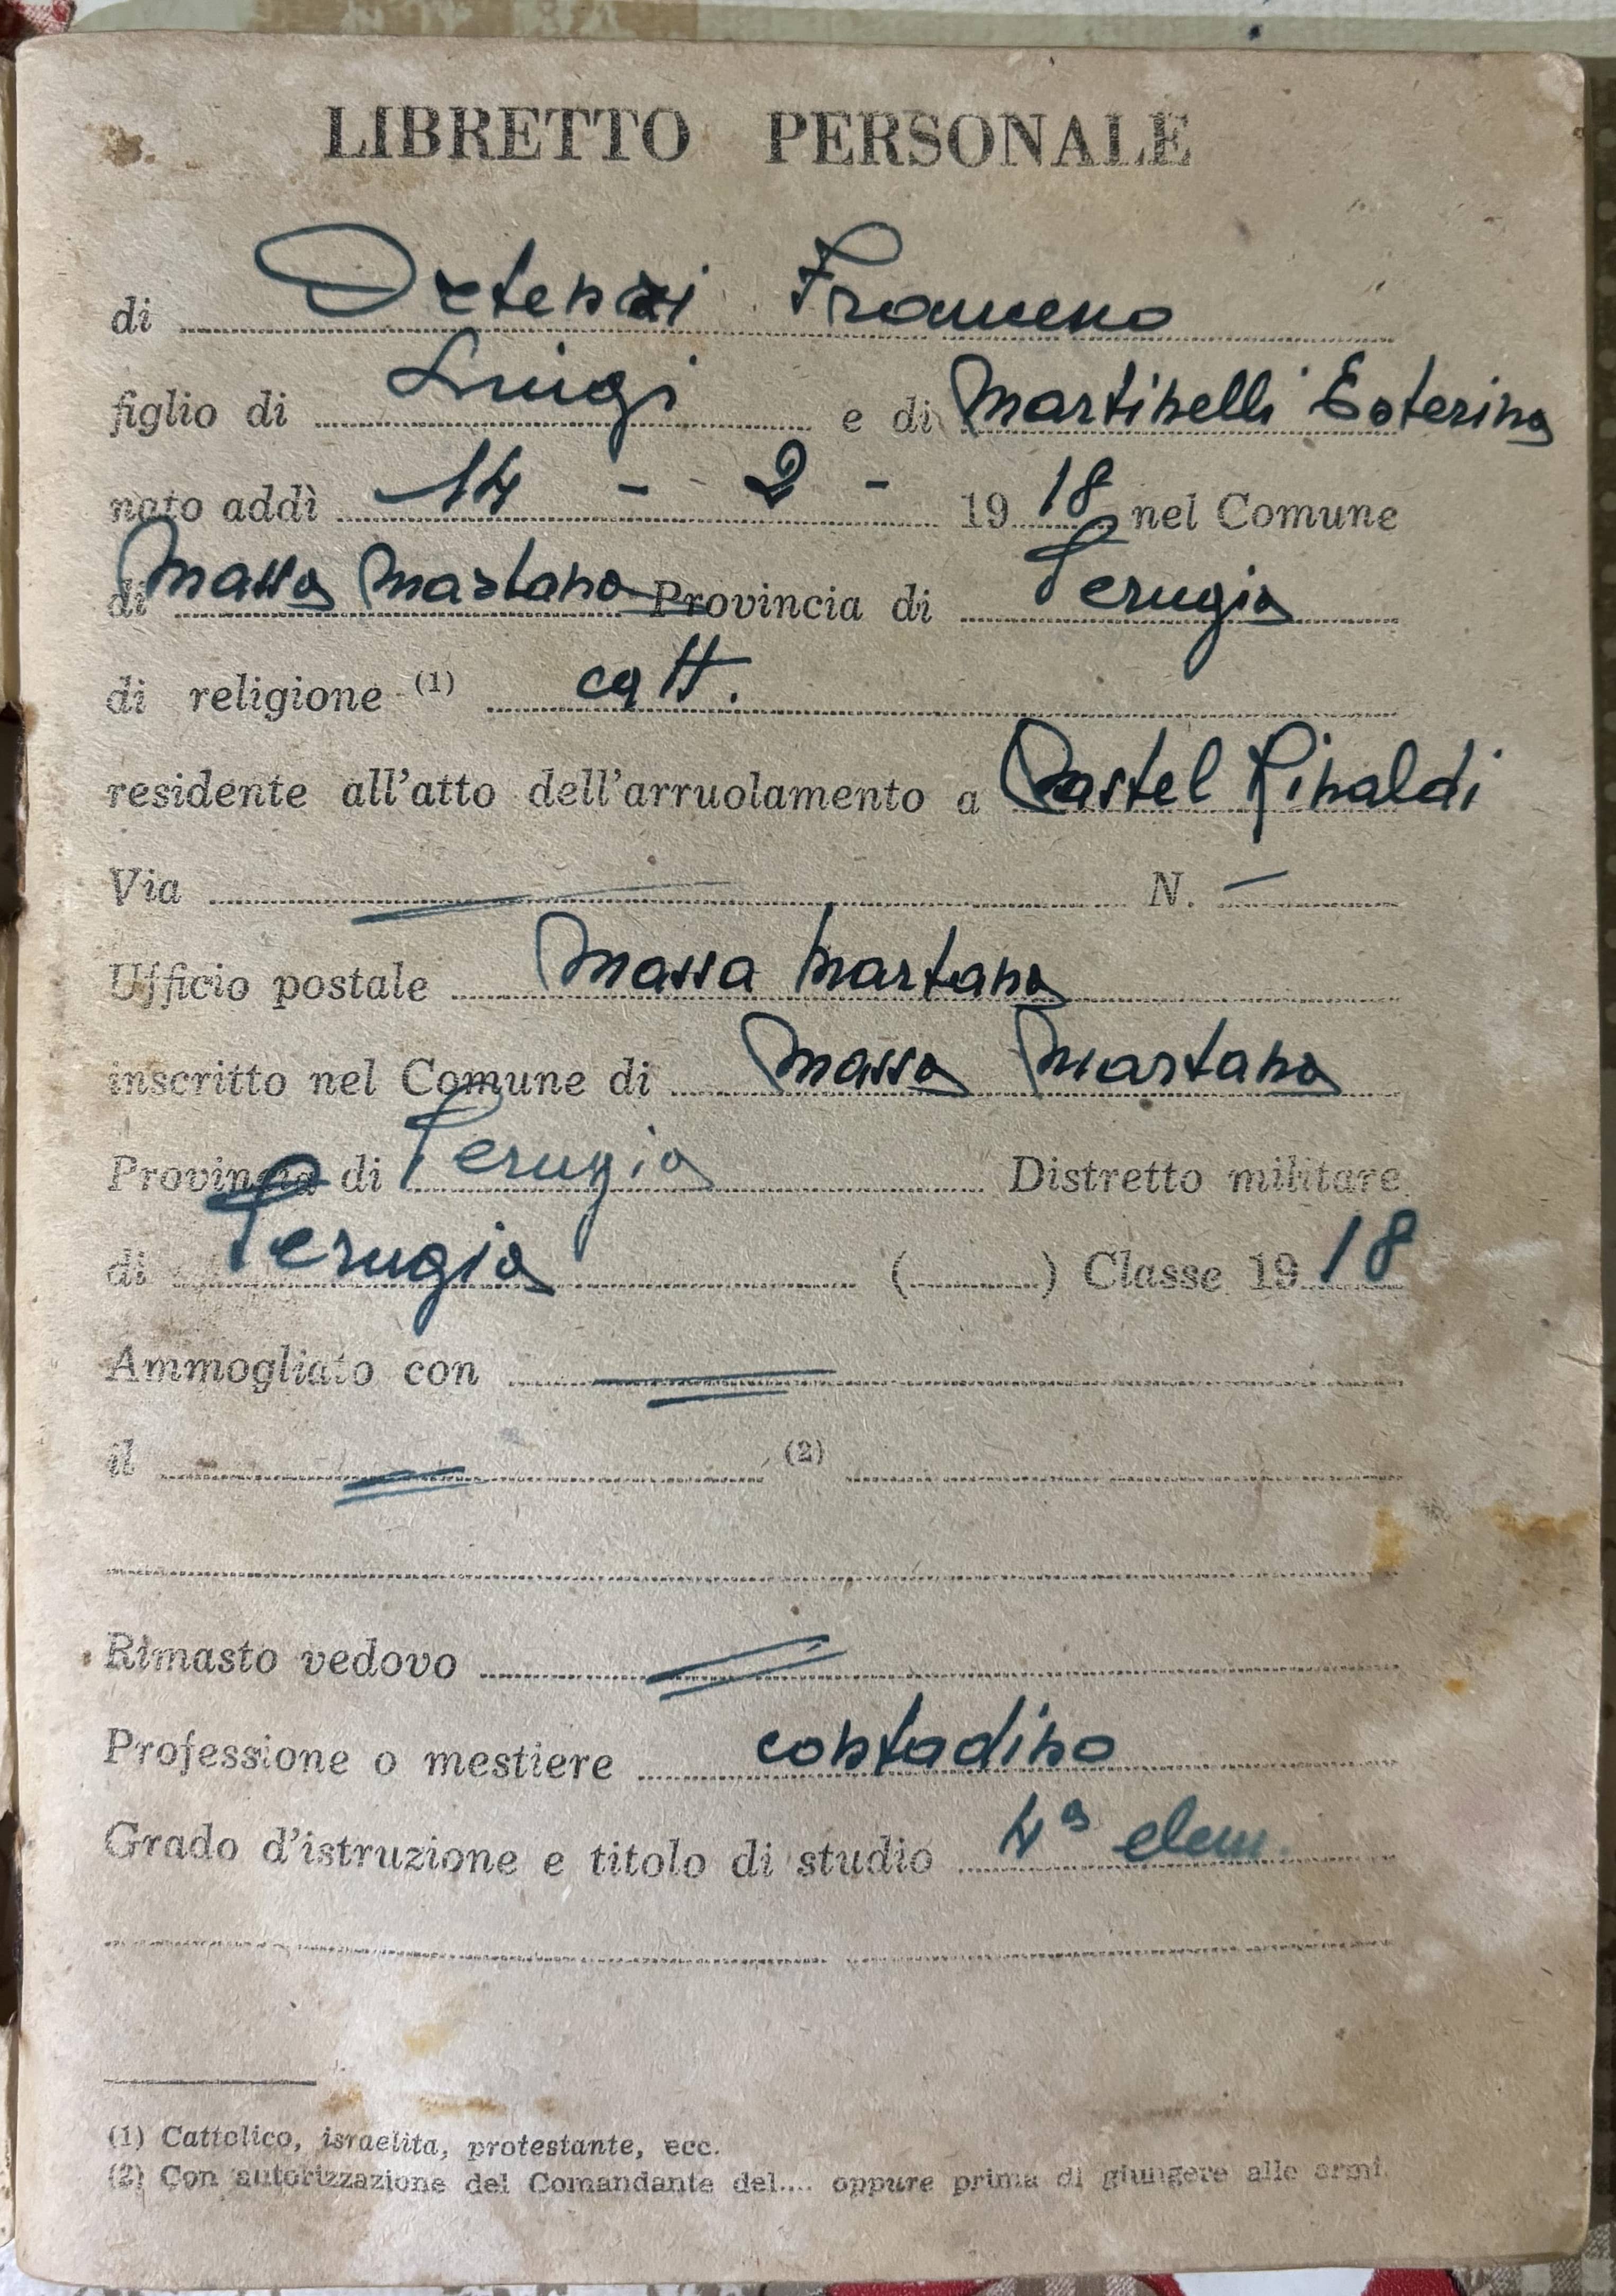 LIBRETTO PERSONALE
di Ortenzi Francesco
figlio di Luigi e di Martinelli Esterina
nato addì 14 - 2 - 1918 nel Comune
di Massa Martana Provincia di Perugia
di religione (1) catt.
residente all'atto dell'arruolamento a Castel Rinaldi
Via — N. —
Ufficio postale Massa Martana
inscritto nel Comune di Massa Martana
Provincia di Perugia Distretto militare
di Perugia (........) Classe 1918
Ammogliato con =
il = (2)
Rimasto vedovo =
Professione o mestiere contadino
Grado d'istruzione e titolo di studio 4ª elem.
(1) Cattolico, israelita, protestante, ecc.
(2) Con autorizzazione del Comandante del.... oppure prima di giungere alle armi.